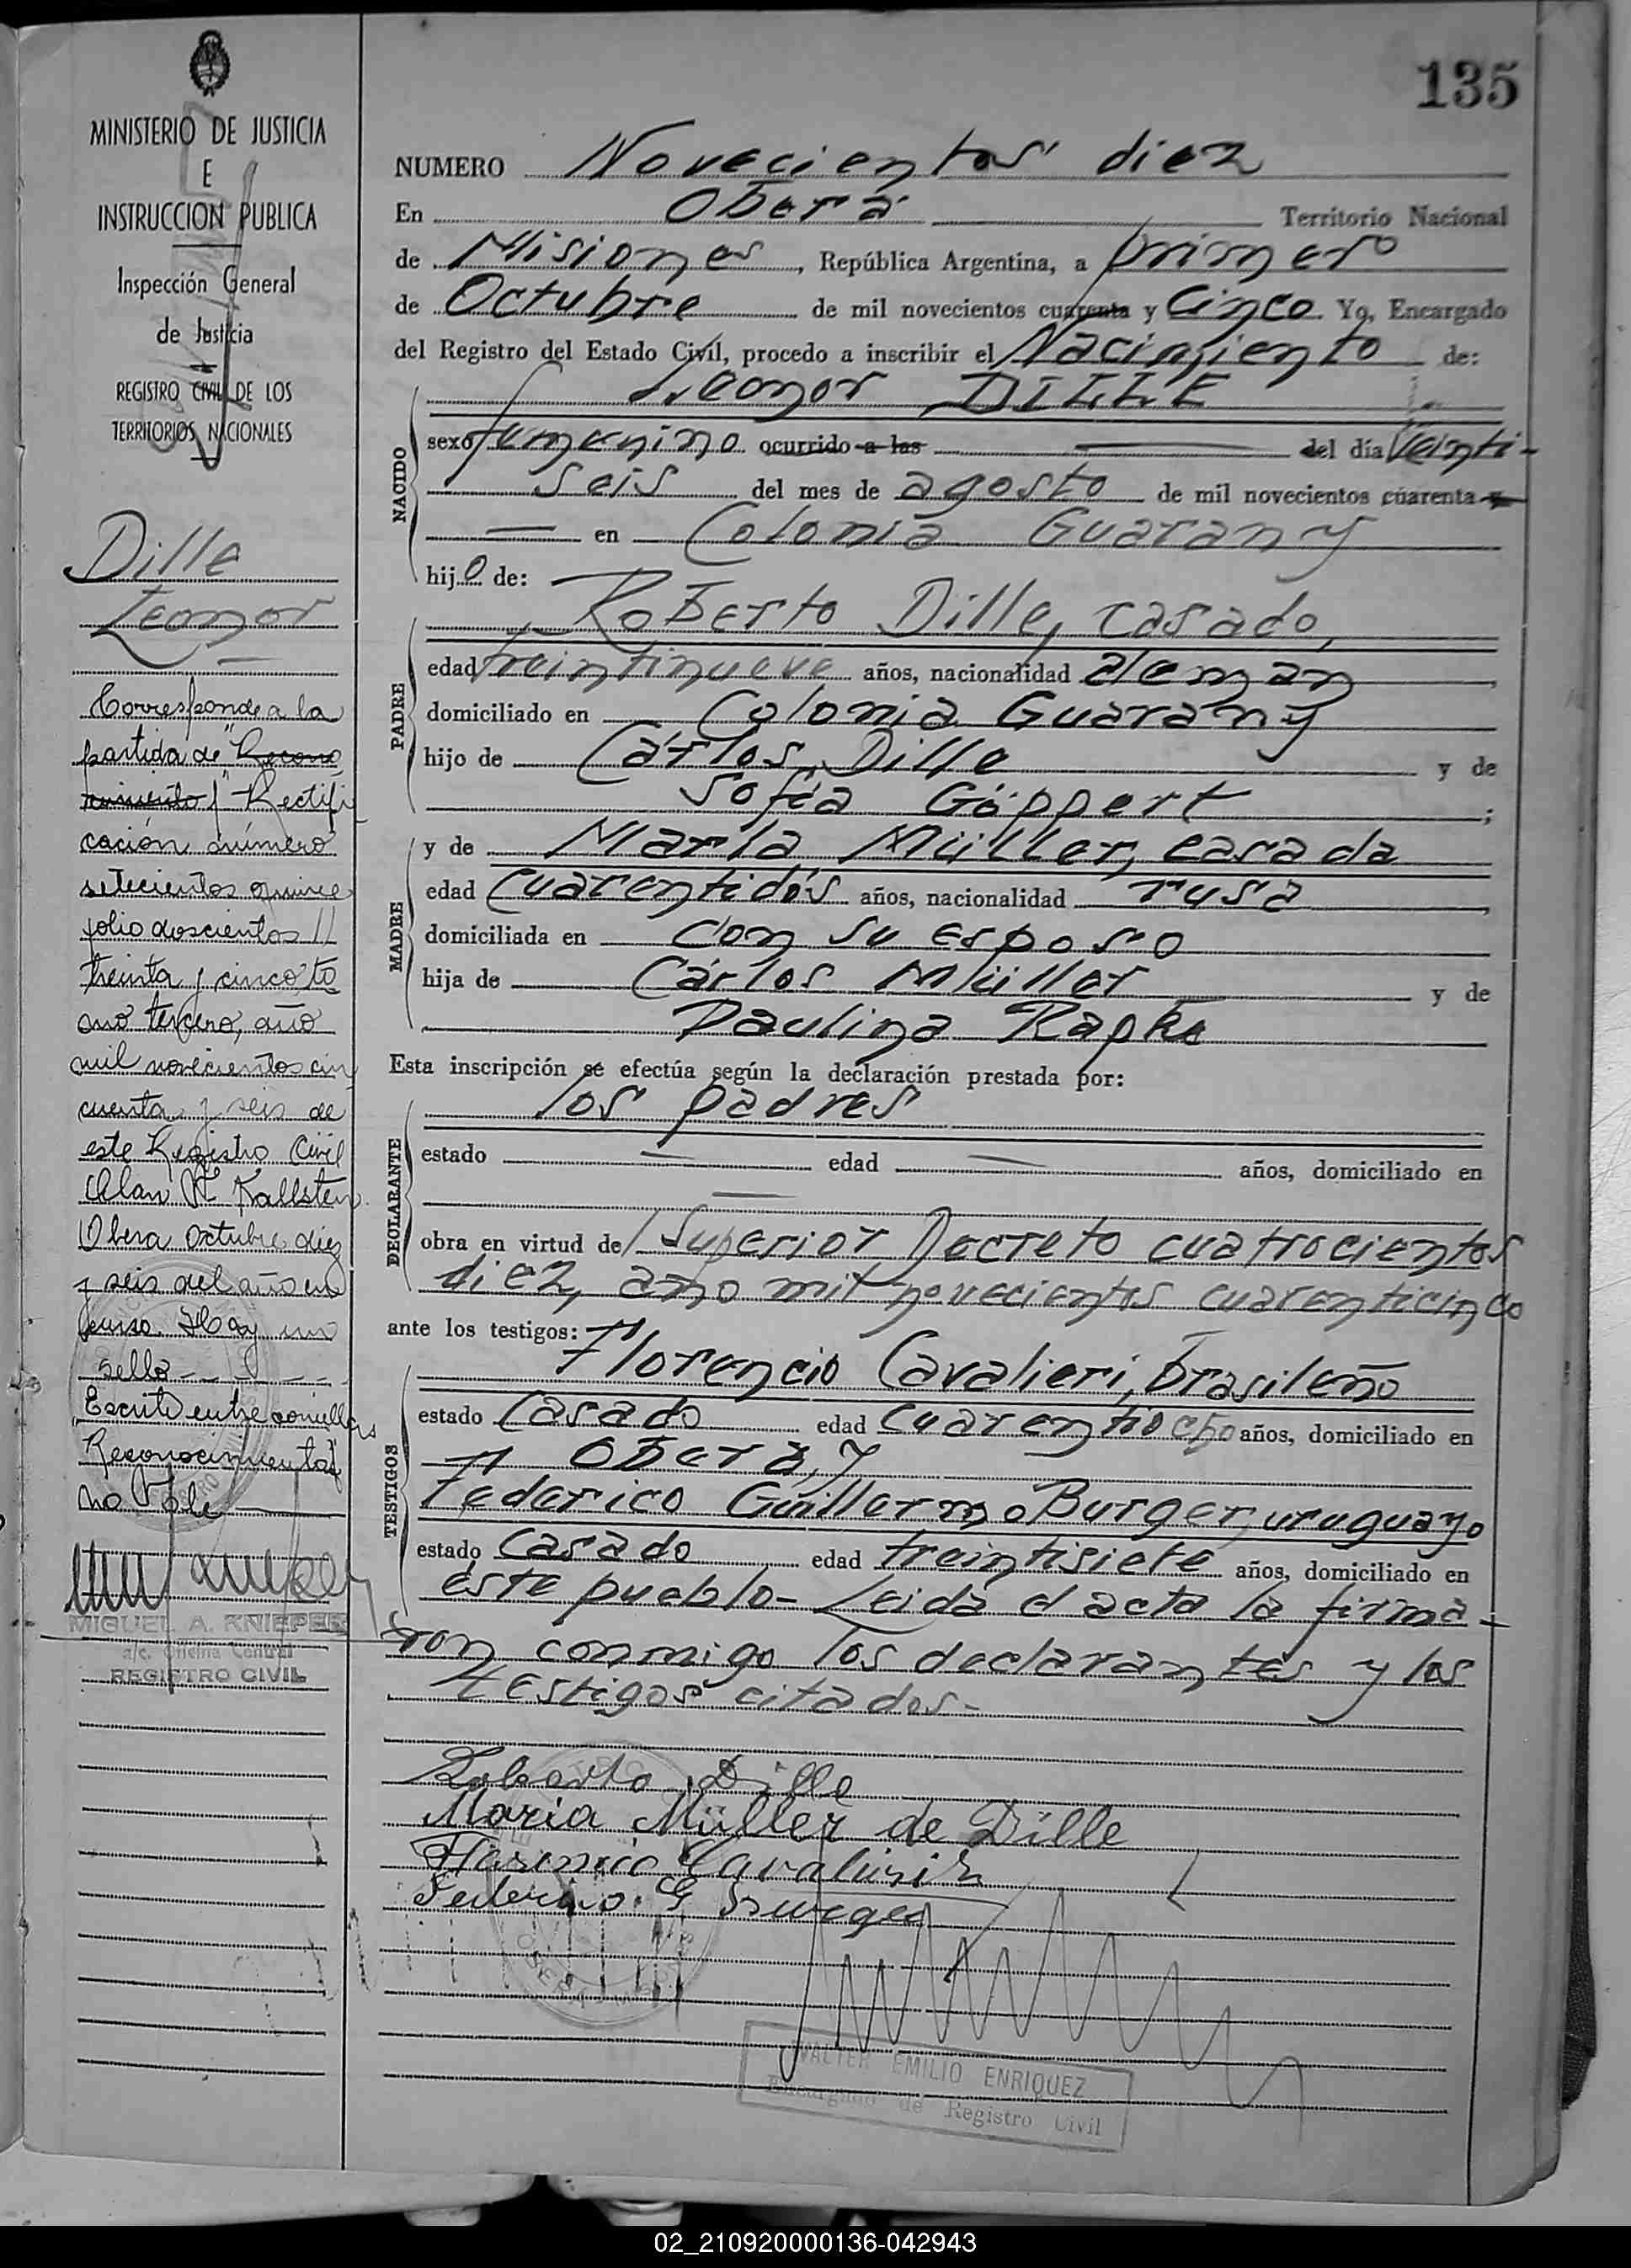 135
MINISTERIO DE JUSTICIA
E
INSTRUCCION PUBLICA
Inspección General
de Justicia
REGISTRO CIVIL DE LOS
TERRITORIOS NACIONALES
Dille
Leonor
Corresponde a la
partida de "Recono
cimiento" Rectifi
cación número
setecientos quince
folio doscientos //
treinta y cinco, to
mo tercero, año
mil novecientos cin
cuenta y seis de
este Registro Civil
Alan Kallsten
Obera Octubre diez
y seis del año en
curso. Hay un
sello - - - - -
Escrito entre comillas
"Reconocimiento"
no vale
MIGUEL A. KNIEPER
a/c. Oficina Central
REGISTRO CIVIL
NUMERO Novecientos diez
En Oberá Territorio Nacional
de Misiones, República Argentina, a primero
de Octubre de mil novecientos cuarenta y Cinco. Yo, Encargado
del Registro del Estado Civil, procedo a inscribir el Nacimiento de:
Leonor DILLE
NACIDO
sexo femenino ocurrido a las — del día veinti-
seis del mes de agosto de mil novecientos cuarenta y
— en Colonia Guarany
hijo de:
PADRE
Roberto Dille, casado,
edad treintinueve años, nacionalidad aleman
domiciliado en Colonia Guarany
hijo de Cárlos Dille y de
Sofía Göppert ;
MADRE
y de María Müller, casada
edad cuarentidós años, nacionalidad rusa
domiciliada en con su esposo
hija de Cárlos Müller y de
Paulina Rapke
Esta inscripción se efectúa según la declaración prestada por:
DECLARANTE
los padres
estado — edad — años, domiciliado en
—
obra en virtud de Superior Decreto cuatrocientos
diez, año mil novecientos cuarenticinco
ante los testigos:
TESTIGOS
Florencio Cavalieri, brasileño
estado Casado edad cuarentiocho años, domiciliado en
Oberá, y
Federico Guillermo Burger, uruguayo
estado Casado edad treintisiete años, domiciliado en
este pueblo- Leida el acta la firma-
ron conmigo los declarantes y los
testigos citados-
Roberto Dille
Maria Müller de Dille
Florencio Cavalieri
Federico G Burger
WALTER EMILIO ENRIQUEZ
Encargado de Registro Civil
02_210920000136-042943